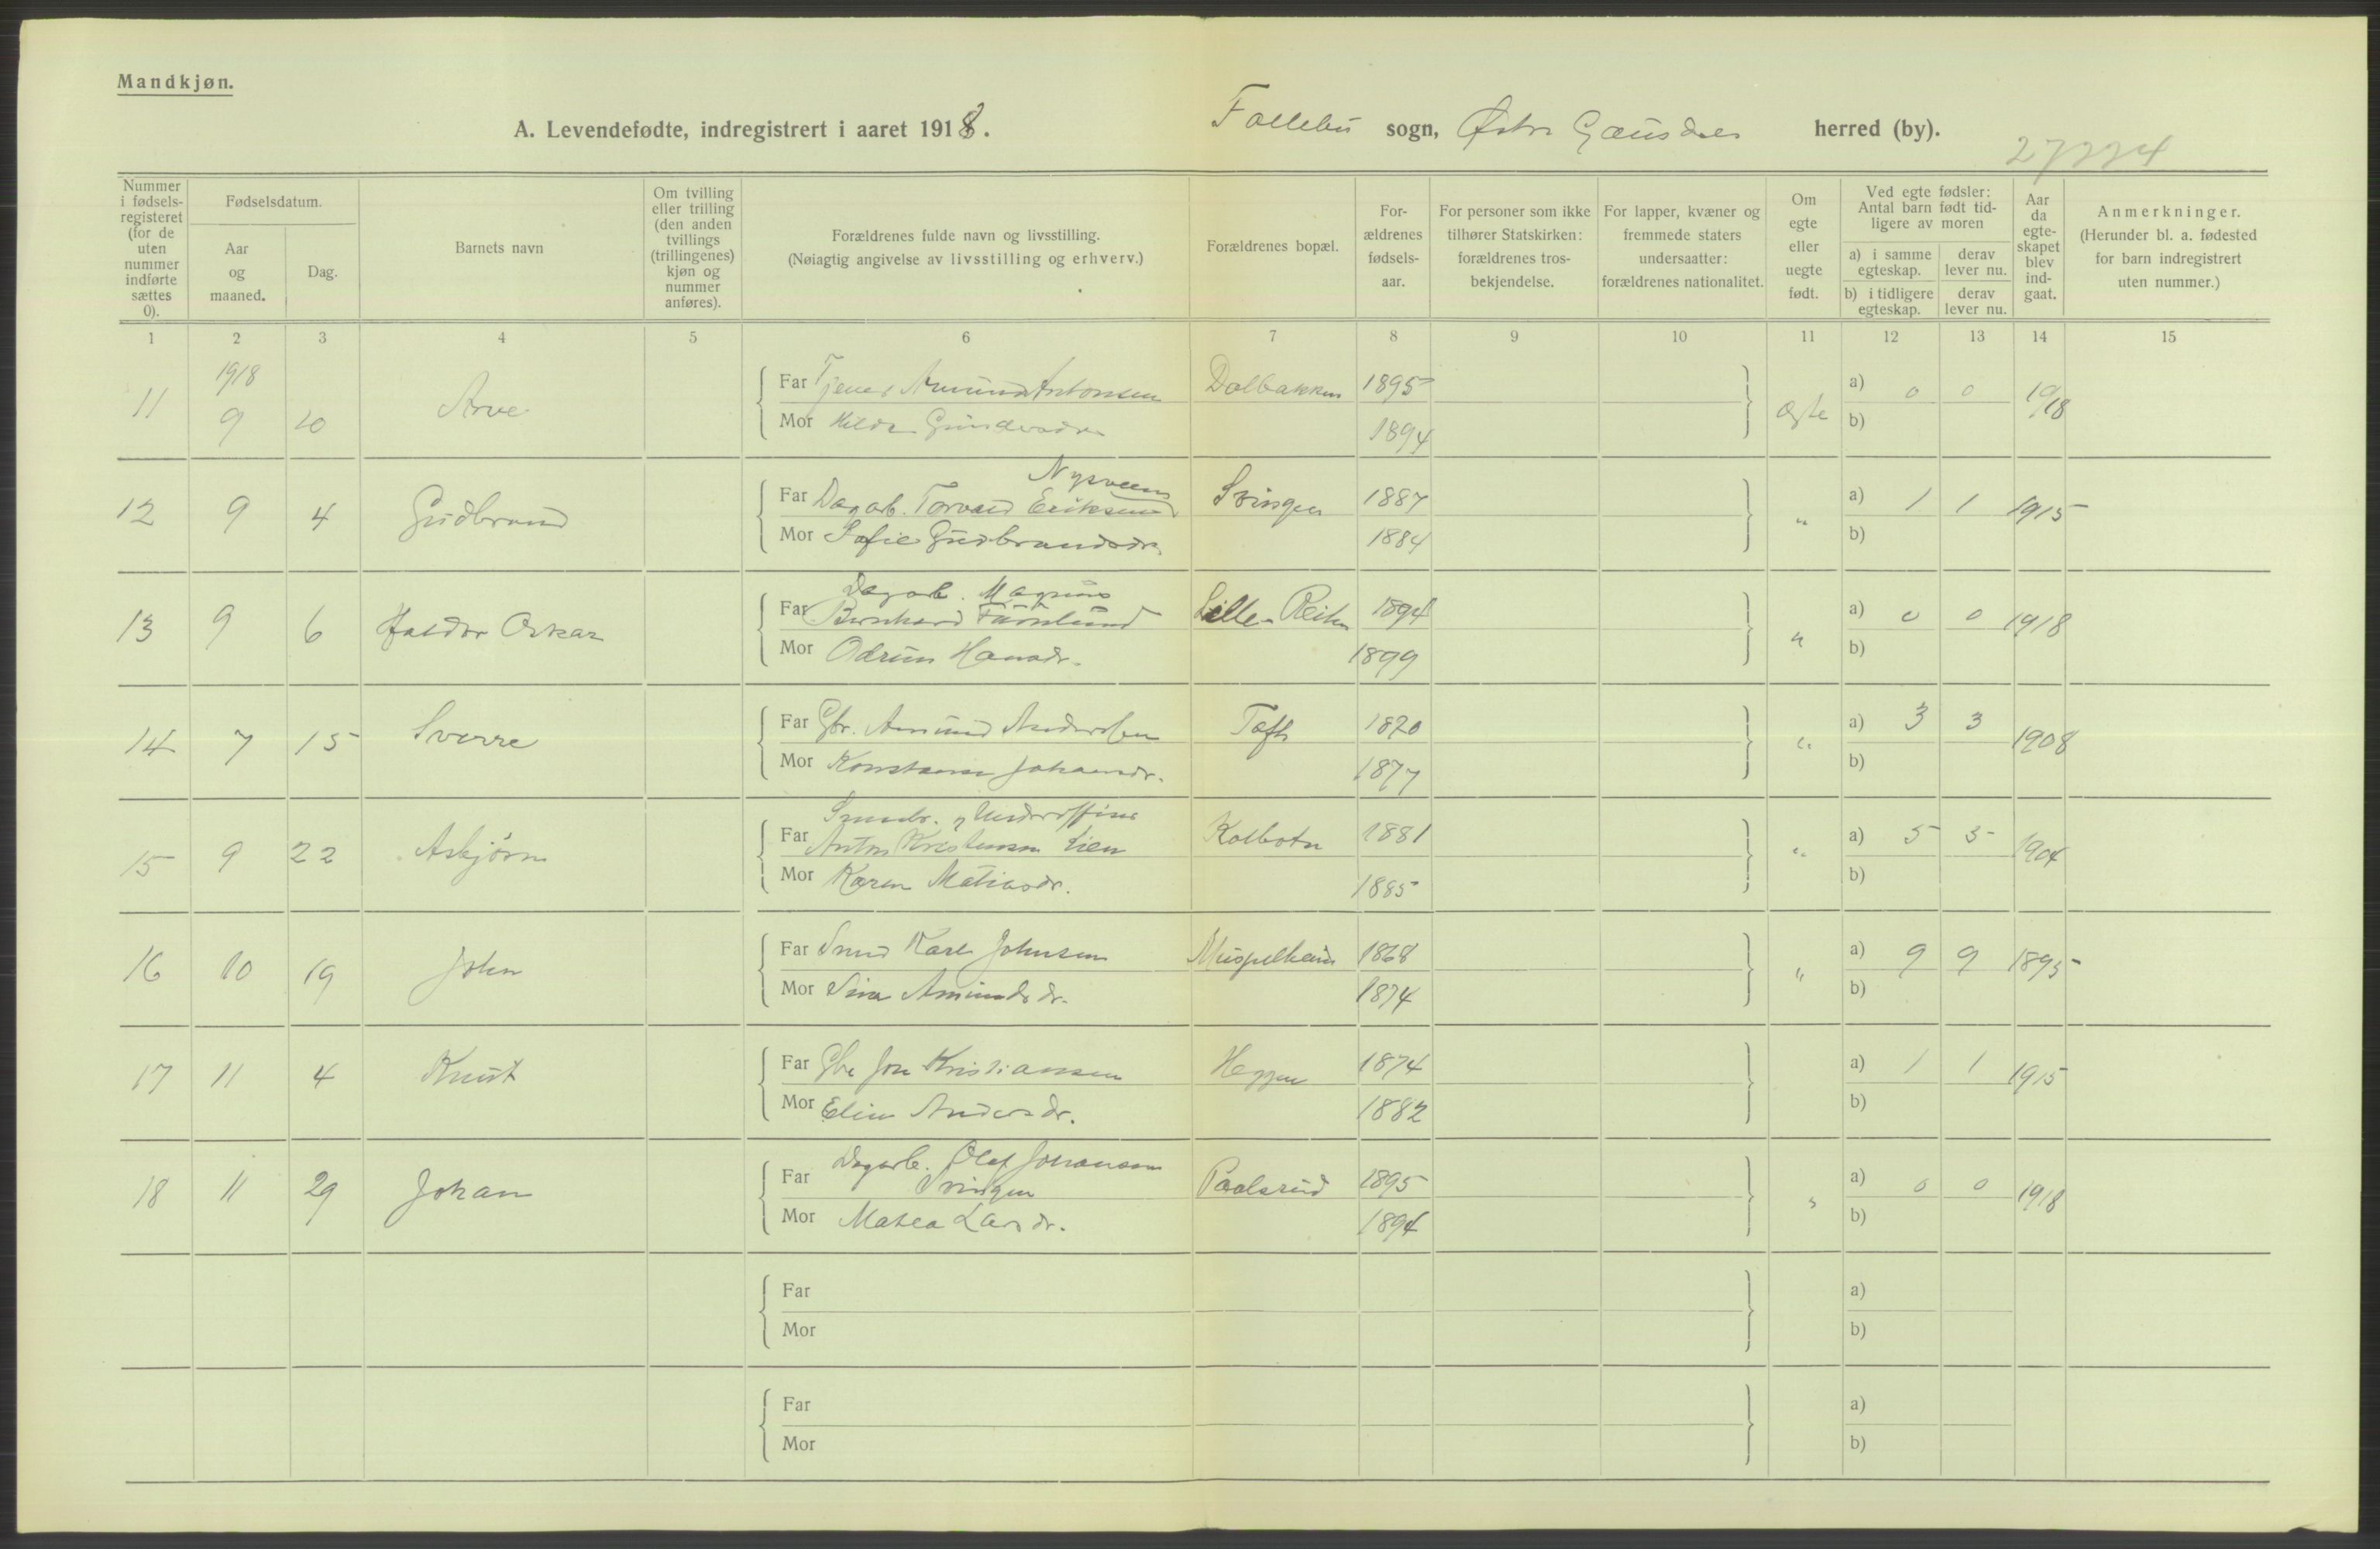 Mandkjøn.
A. Levendefødte, indregistrert i aaret 1918. Follebu sogn, Østre Gausdal herred (by).
27224
Nummer i fødselsregisteret (for de uten nummer indførte sættes 0).
Fødselsdatum.
Aar og maaned.
Dag.
Barnets navn
Om tvilling eller trilling (den anden tvillings (trillingenes) kjøn og nummer anføres).
Forældrenes fulde navn og livsstilling.
(Nøiagtig angivelse av livsstilling og erhverv.)
Forældrenes bopæl.
Forældrenes fødselsaar.
For personer som ikke tilhører Statskirken: forældrenes trosbekjendelse.
For lapper, kvæner og fremmede staters undersaatter: forældrenes nationalitet.
Om egte eller uegte født.
Ved egte fødsler: Antal barn født tidligere av moren
a) i samme egteskap.
derav lever nu.
b) i tidligere egteskap.
derav lever nu.
Aar da egteskapet blev indgaat.
Anmerkninger.
(Herunder bl. a. fødested for barn indregistrert uten nummer.)
1 2 3 4 5 6 7 8 9 10 11 12 13 14 15
1918
11 9 20 Arve Far Tjener Amund Antonsen Dalbakken 1895 egte a) 0 0 1918
Mor Hilda 1894 b)
Nysveen
12 9 4 Gudbrand Far Dagarb. Torvald Eriksen Svingen 1887 " a) 1 1 1915
Mor Sofie Gudbrandsdr. 1884 b)
Dagarb. Magnus
13 9 6 Haldor Oskar Far Bernhard Lille- 1894 " a) 0 0 1918
Mor Odrun Hansdr. 1899 b)
14 7 15 Sverre Far Gbr. Amund Andersen Toft 1870 " a) 3 3 1908
Mor Konstanse Johansdr. 1877 b)
Smaabr. & Underoffiser
15 9 22 Asbjørn Far Anton Kristensen Lien Kolbotn 1881 " a) 5 5 1904
Mor Karen Matiasdr. 1885 b)
16 10 19 John Far Smed Karl Johnsen Muspelheim 1868 " a) 9 9 1895
Mor Amundsdr. 1874 b)
17 11 4 Knut Far Gbr Jon Kristiansen Heggen 1874 a) 1 1 1915
Mor Elise Andersdr. 1882 b)
Dagarb. Olaf Johansen
18 11 29 Johan Far Svingen Paalsrud 1895 " a) 0 0 1918
Mor Matea Larsdr. 1894 b)
Far a)
Mor b)
Far a)
Mor b)